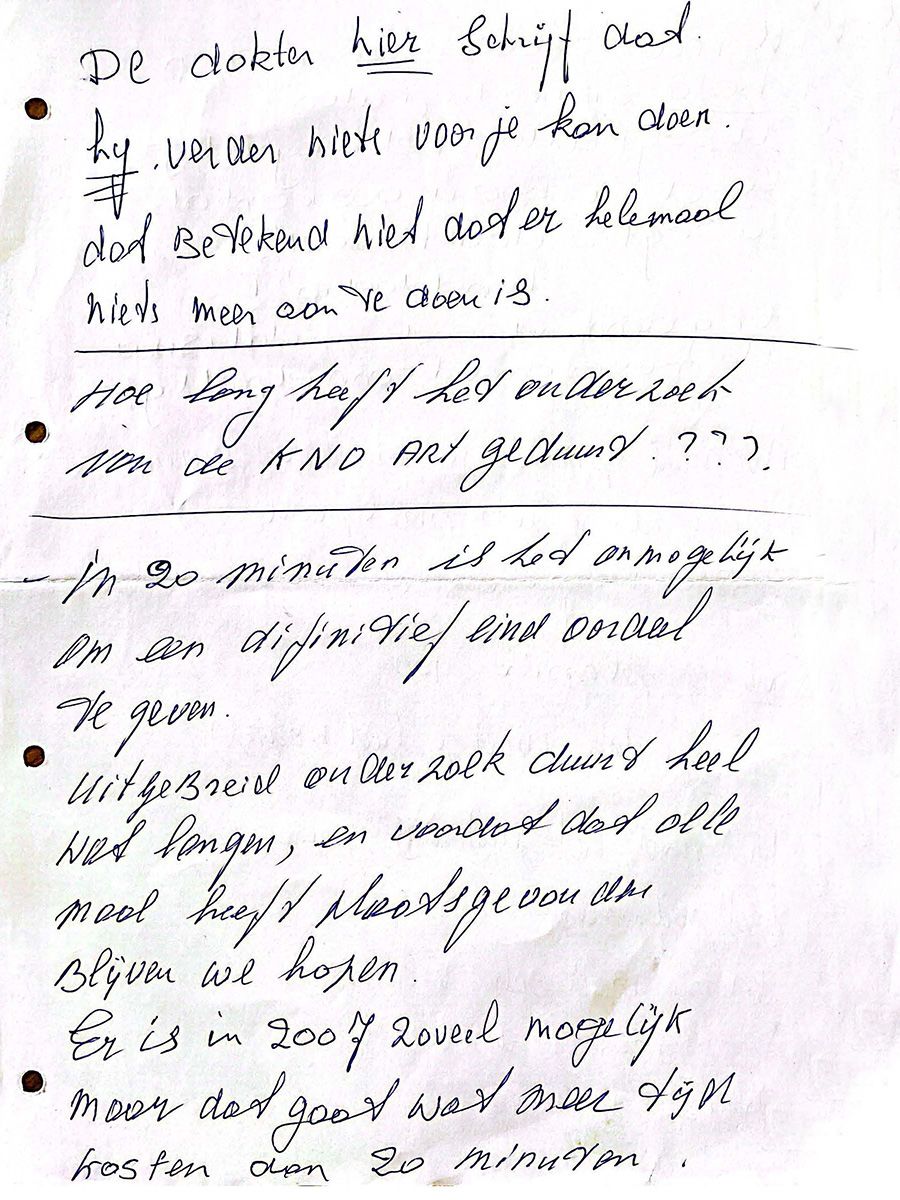 De dokter hier Schrijf dat.
hy. verder niets voor je kan doen.
dat Betekend niet dat er helemaal
niets meer aan te doen is.
Hoe lang heeft het onderzoek
van de KNO ARt geduurd. ???.
- In 20 minuten is het onmogelijk
om een difinitief eind oordeel
te geven.
UitgeBreid onderzoek duurt heel
wat langer, en voordat dat alle
maal heeft plaatsgevonden
Blijven we hopen.
Er is in 2007 zoveel mogelijk
maar dat gaat wat meer tijd
kosten dan 20 minuten.